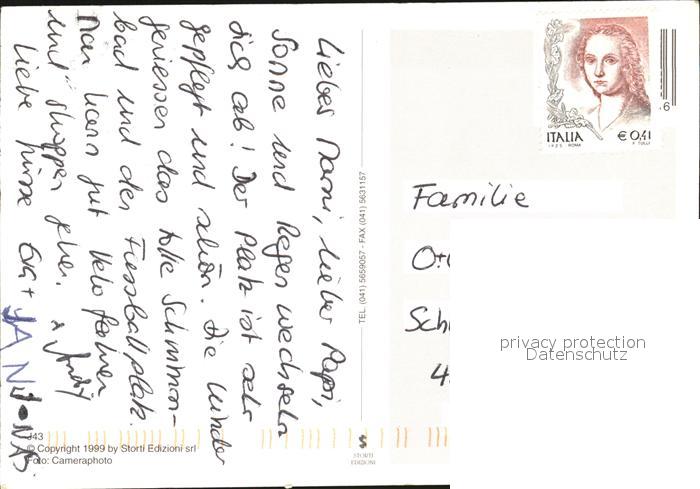 Liebes Mami, lieber Papi,
Sonne und Regen wechseln
sich ab! Der Platz ist sehr
gepflegt und schön. Die Kinder
geniessen das tolle Schwimm-
bad und den Fussballplatz.
Man kann gut Velo fahren
und "shoppen" gehen.
Liebe Küsse Eva +
JAN
Familie
Sch
ITALIA
€ 0,41
1325 ROMA
F TULLI
.6
TEL. (041) 5659057 - FAX (041) 5631157
privacy protection
Datenschutz
J43
© Copyright 1999 by Storti Edizioni srl
Foto: Cameraphoto
S
STORTI
EDIZIONI